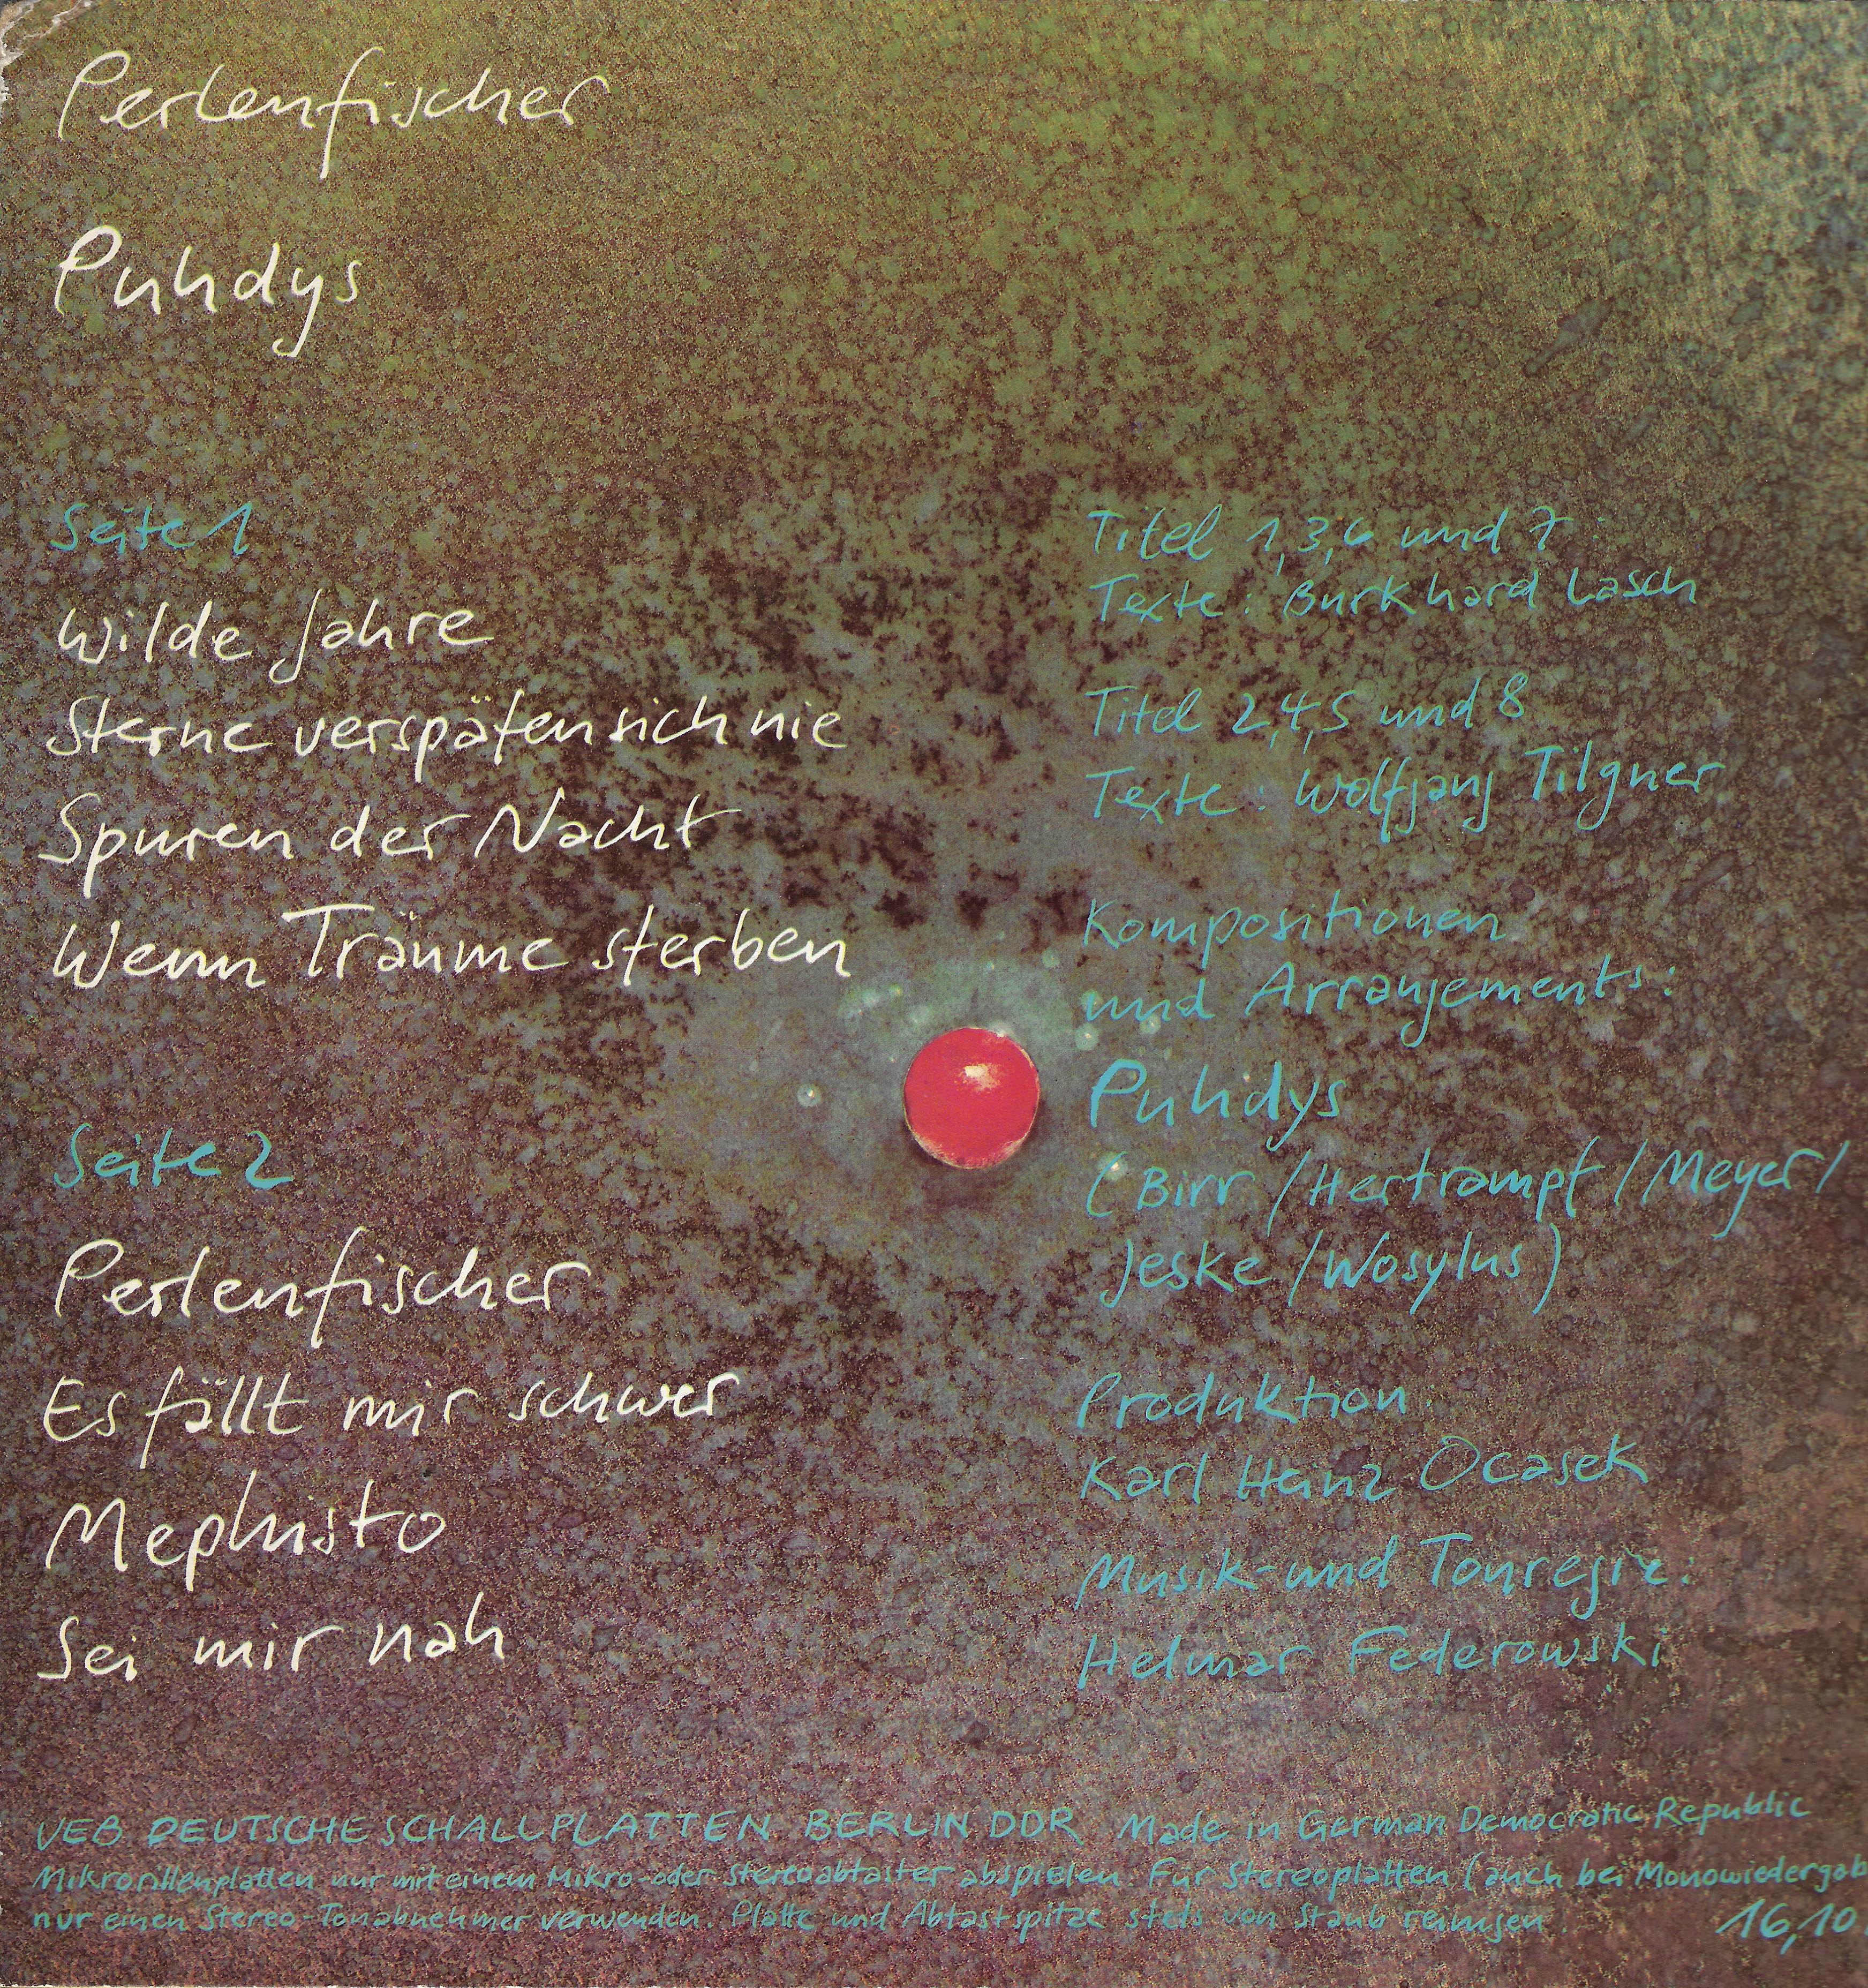 Perlenfischer
Puhdys
Seite 1
Wilde Jahre
Sterne verspäten sich nie
Spuren der Nacht
Wenn Träume sterben
Seite 2
Perlenfischer
Es fällt mir schwer
Mephisto
Sei mir nah
Titel 1,3,6 und 7:
Texte: Burkhard Lasch
Titel 2,4,5 und 8
Texte: Wolfgang Tilgner
Kompositionen
und Arrangements:
Puhdys
(Birr/Hertrampf/Meyer/
Jeske/Wosylus)
Produktion:
Karl Heinz Ocasek
Musik- und Tonregie:
Helmar Federowski
VEB DEUTSCHE SCHALLPLATTEN BERLIN DDR Made in German Democratic Republic
Mikrorillenplatten nur mit einem Mikro- oder Stereoabtaster abspielen. Für Stereoplatten (auch bei Monowiedergab
nur einen Stereo-Tonabnehmer verwenden. Platte und Abtastspitze stets von Staub reinigen.
16,10